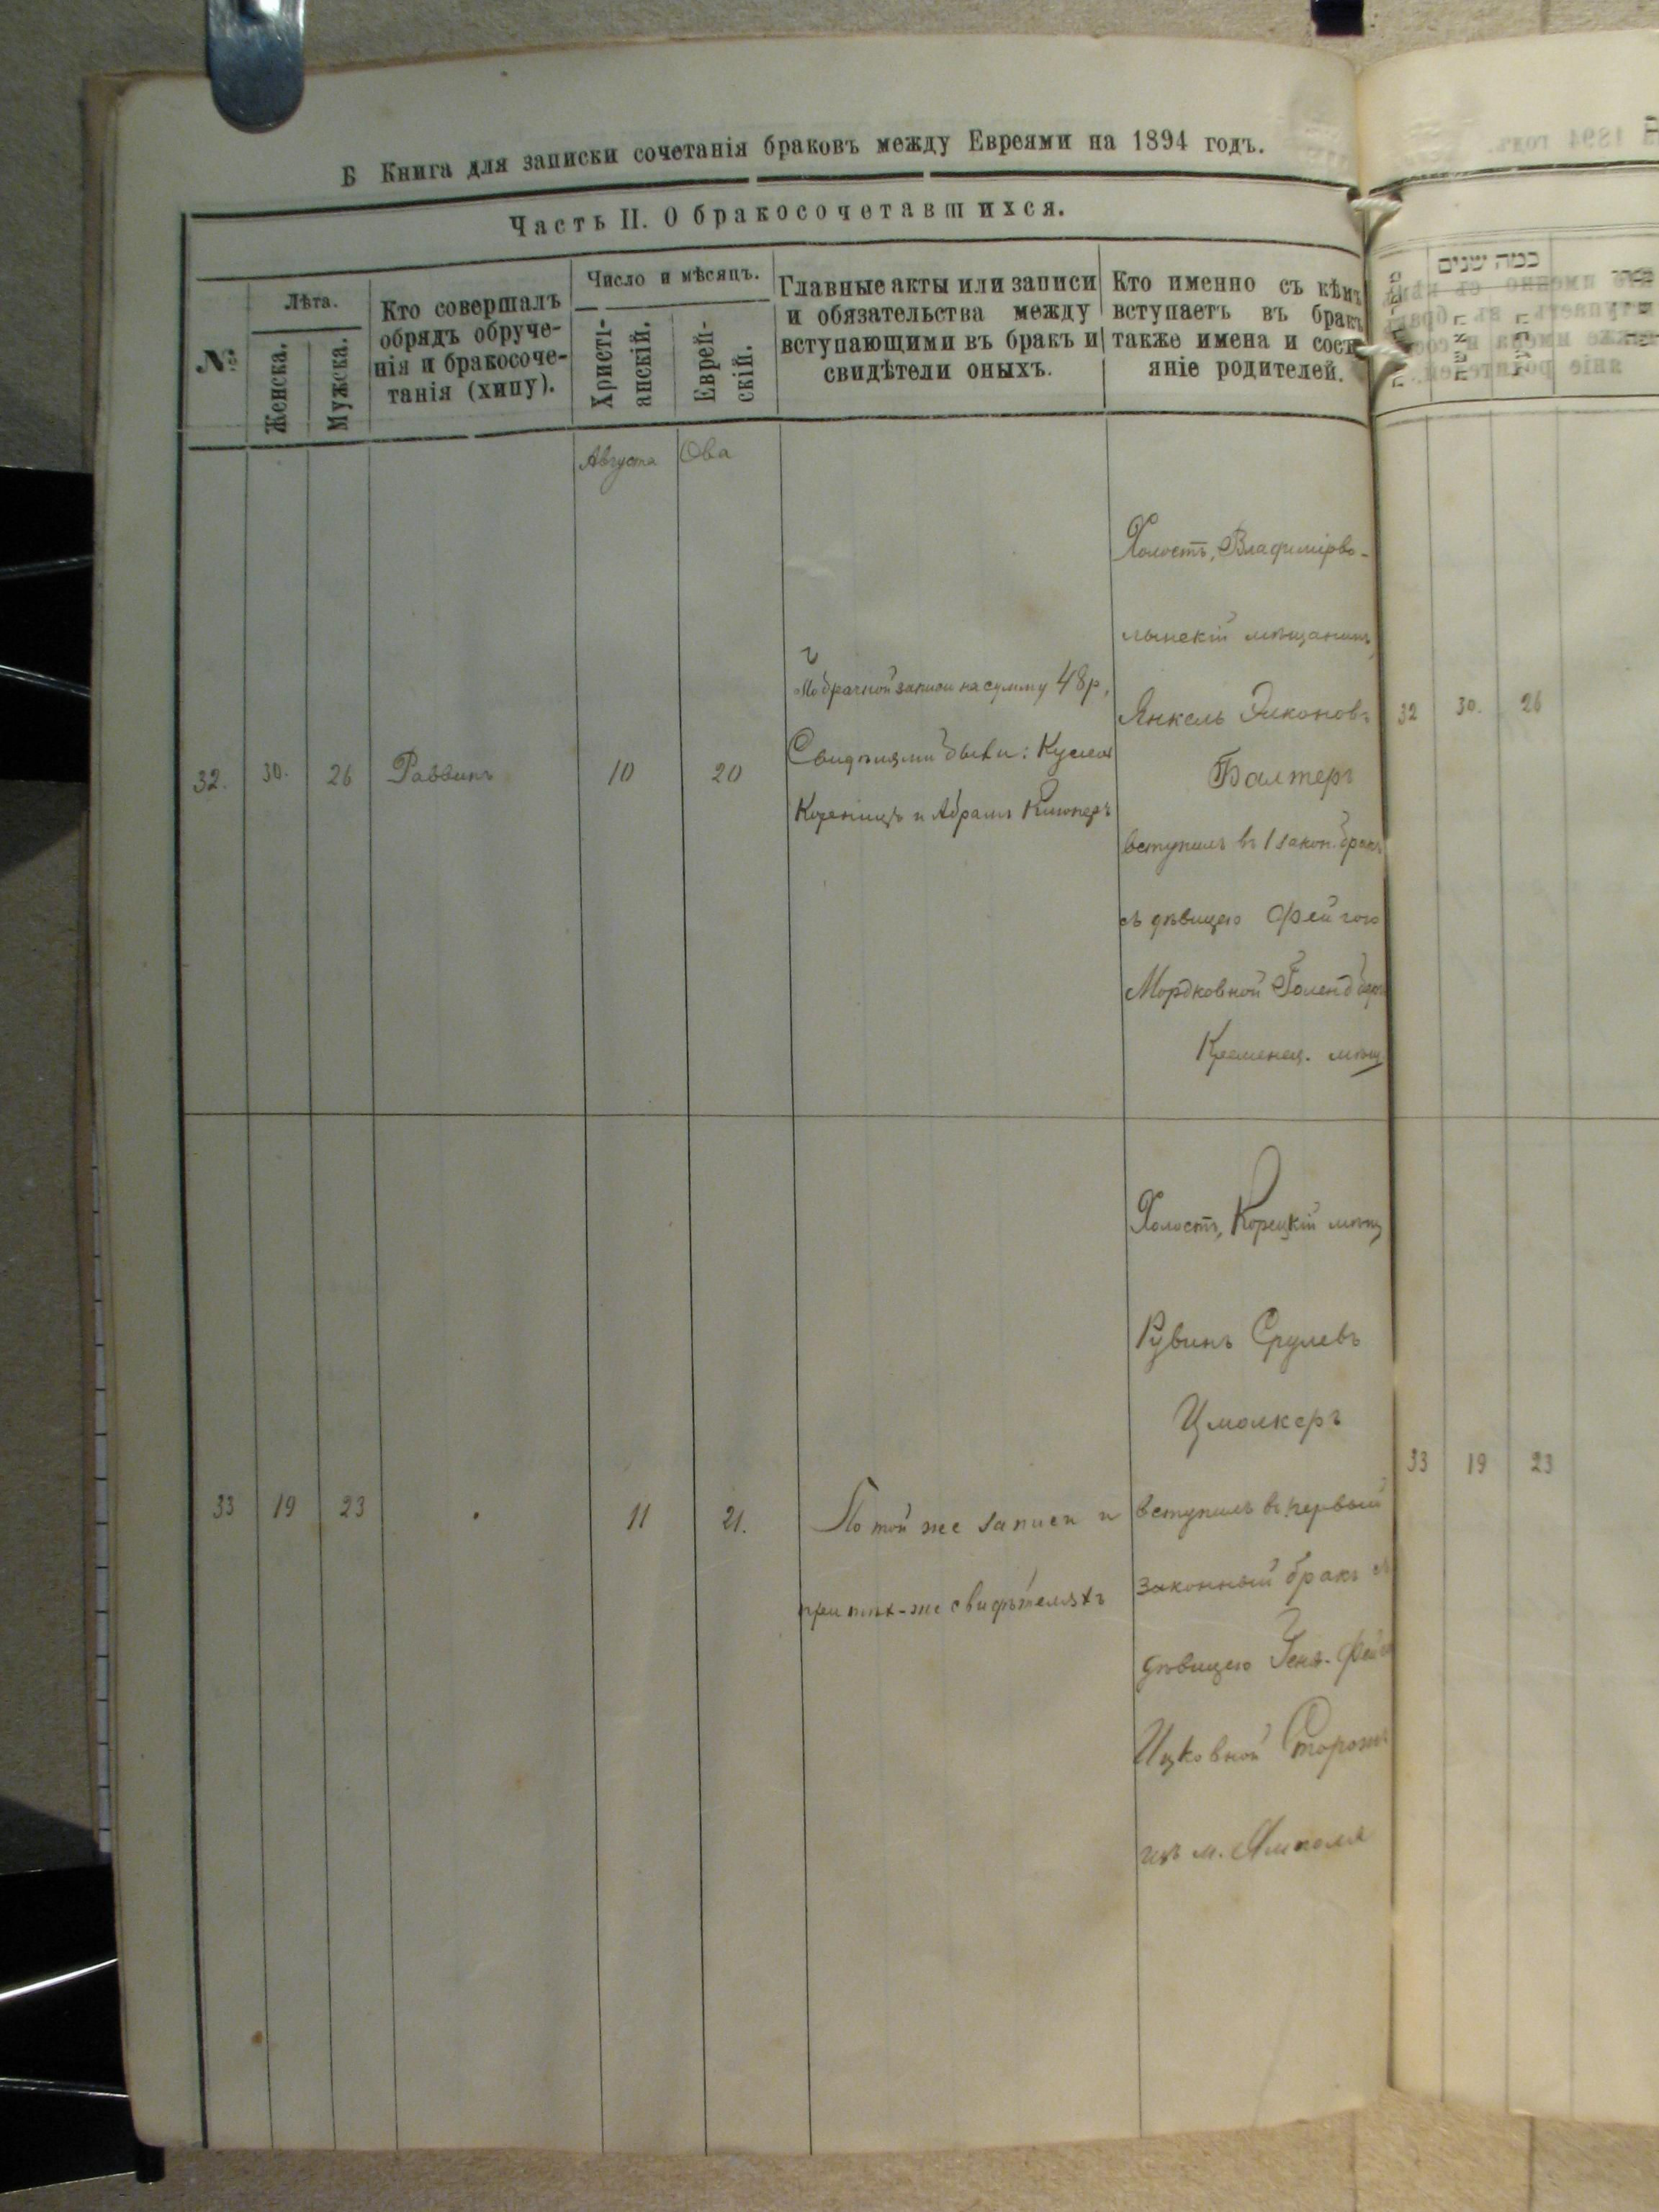 Б Книга для записки сочетанія браковъ между Евреями на 1894 годъ.
Часть II. О бракосочетавшихся.
№
Лѣта.
Женска.
Мужска.
Кто совершалъ
обрядъ обруче-
нія и бракосоче-
танія (хипу).
Число и мѣсяцъ.
Христі-
анскій.
Еврей-
скій.
Главные акты или записи
и обязательства между
вступающими въ бракъ и
свидѣтели оныхъ.
Кто именно съ кѣмъ
вступаетъ въ бракъ
также имена и состо
яніе родителей.
Августа
Ова
32.
30.
26
Раввинъ
10
20
По брачной записи на сумму 48 р,
Свидѣтелями были:
и Абрамъ
Холостъ, Владимірво-
лынскій мѣщанинъ,
Янкель
Балтеръ
вступилъ въ 1 закон. бракъ
съ дѣвицею Фейгою
Мордковной
Кременец. мѣщ
33
19
23
11
21.
По той же записи и
при тѣх-же свидѣтеляхъ
Холостъ, Корецкій мѣщ
Рувинъ Срулевъ
Цмолкеръ
вступилъ въ первый
законный бракъ съ
дѣвицею Геня-
Ицковной
изъ м. Ямполя
כמה שנים
32 30. 26
33 19 23